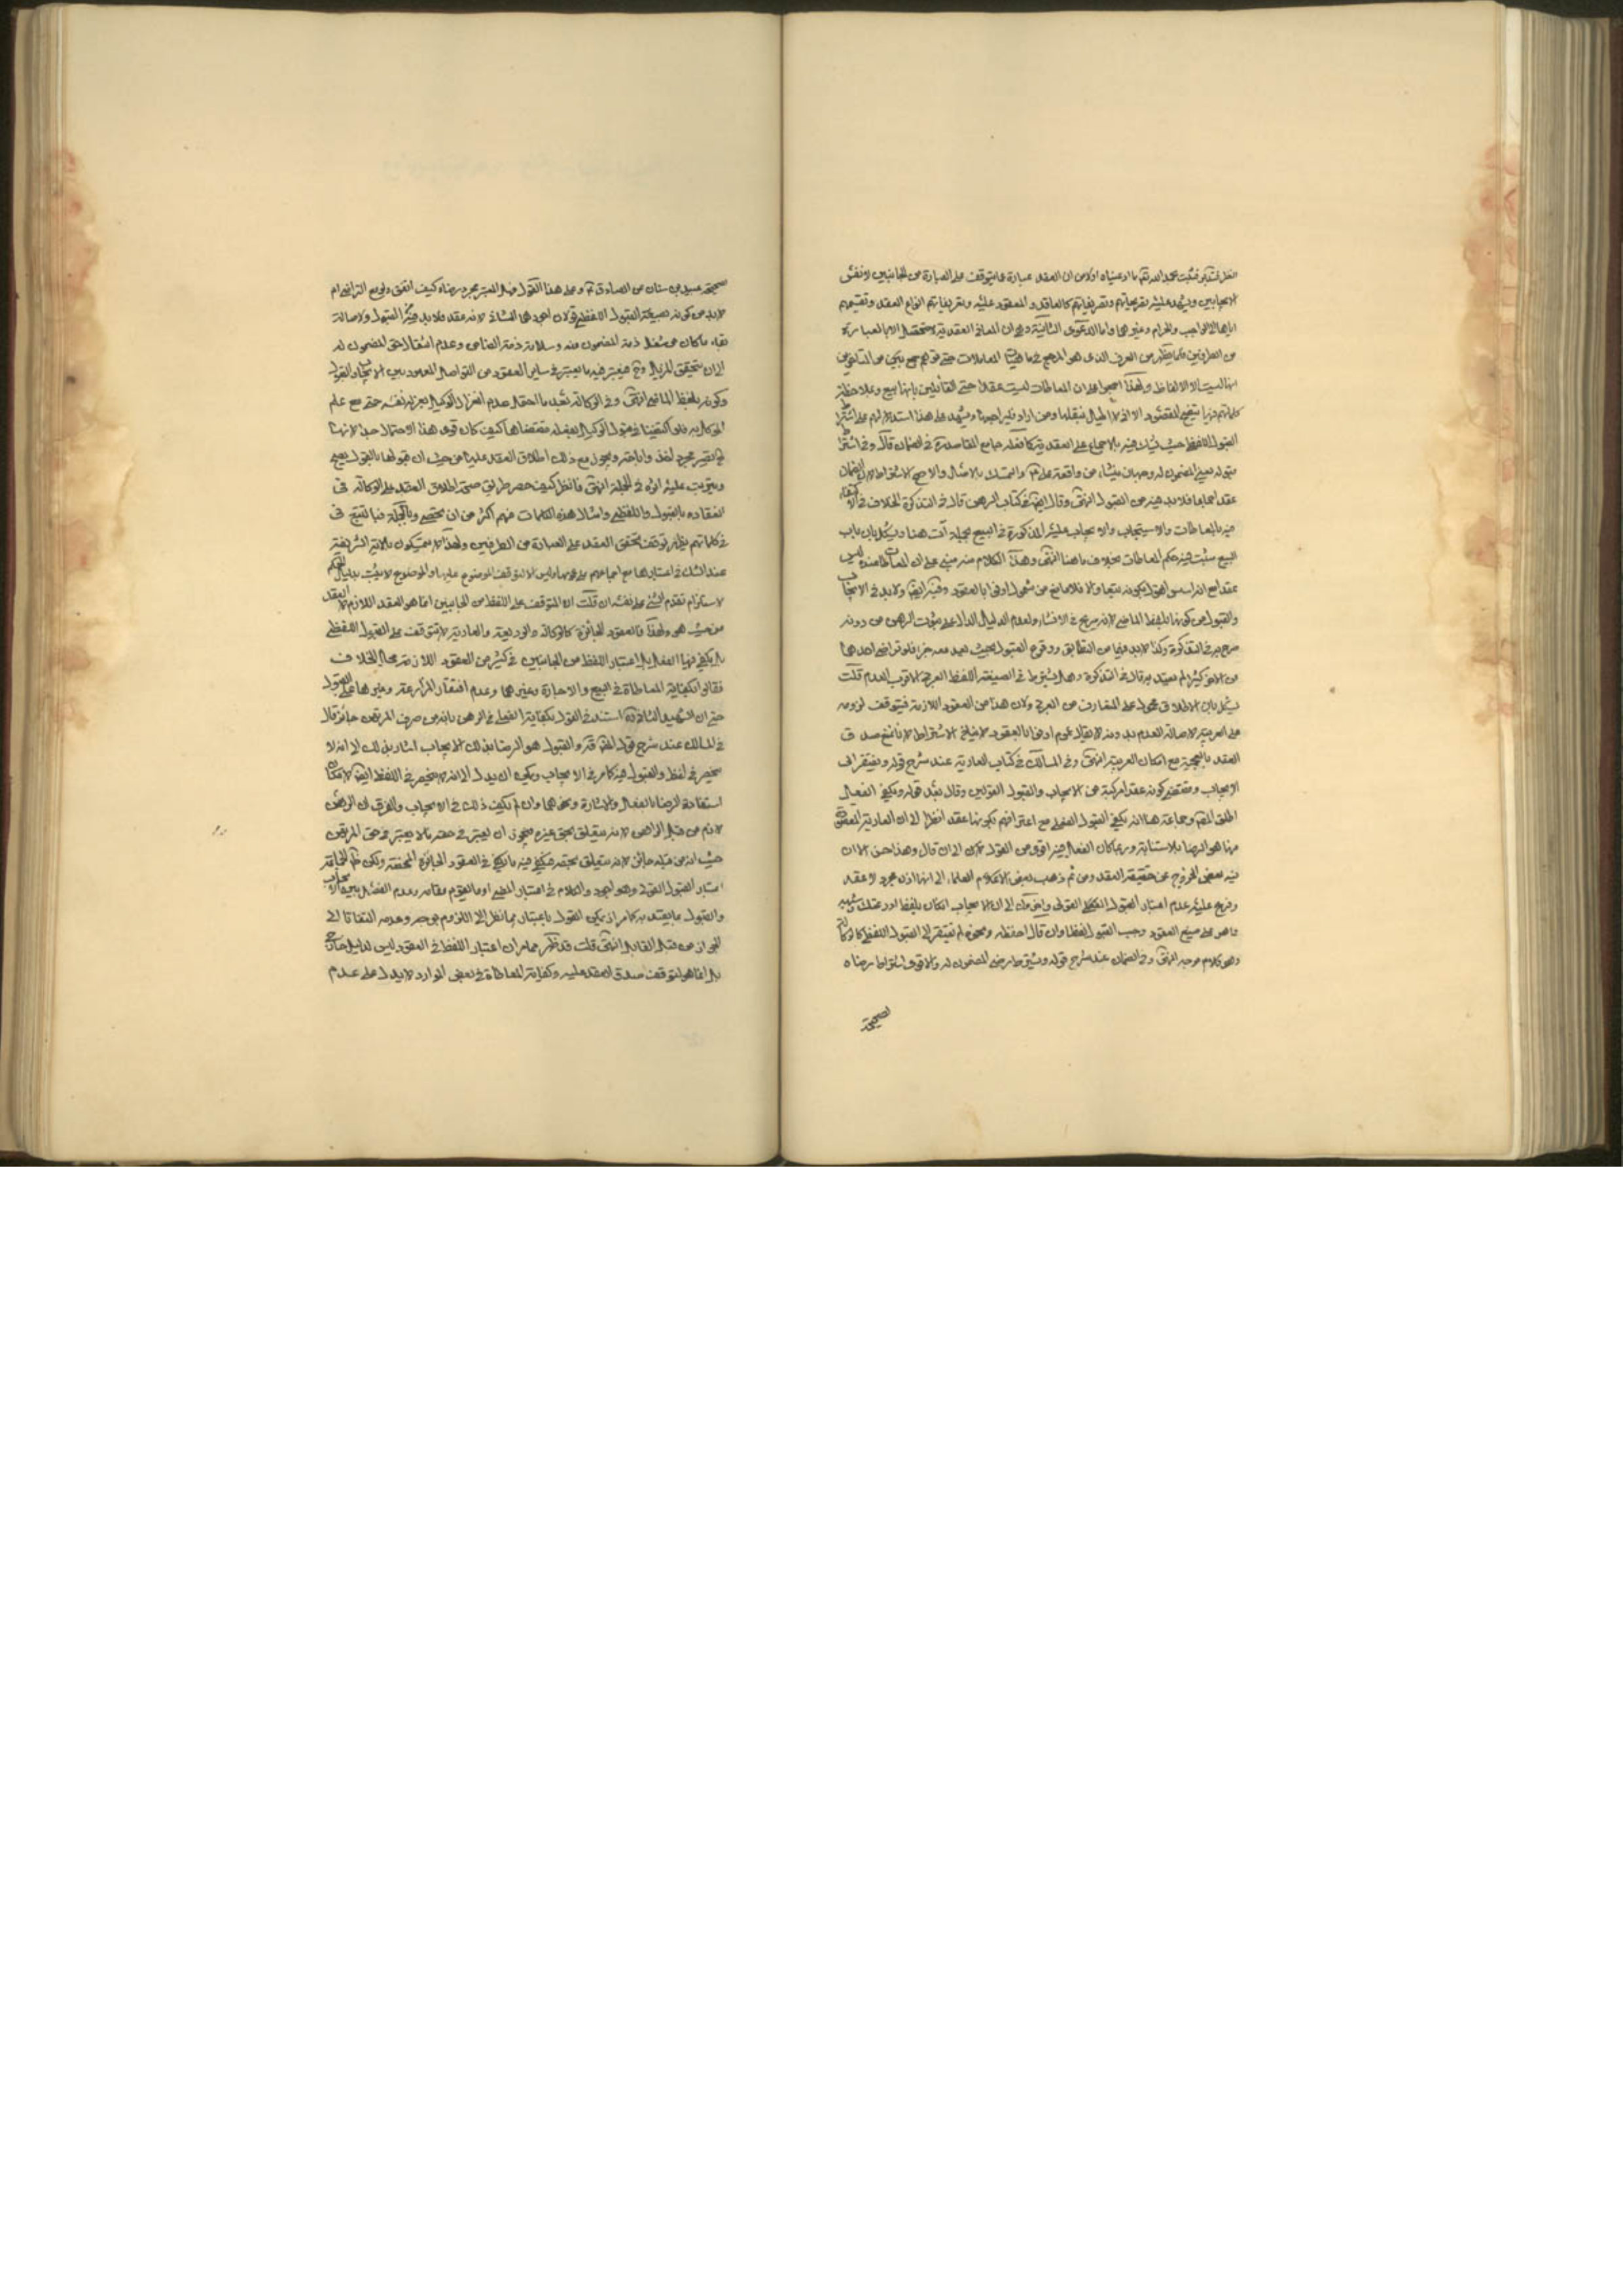 النظر فتدبر فثبت بحمد الله تعالى ما ادعيناه اولا من ان العقد عبارة عما يتوقف على العبارة من الجانبين لا نفس
الايجابين ويشهد عليه تصريحاتهم وتعريفاتهم كالعاقد والمعقود عليه وتعريفاتهم انواع العقد وتقسيمهم
اياها الى الواجب والحرام وغيرهما واما الدعوى الثانية وهي ان المعاني العقدية لا تتحصل الا بالعبارة
من الطرفين فلما يظهر من العرف الذي هو المرجع في المعاملات حتى
انها ليست الا الالفاظ ولهذا اجمعوا على ان المعاطات ليست عقدا حتى القائلين بانها بيع وملاحظة
كلماتهم فيها ومن اراد فليراجعها ويشهد على هذا استدلالهم على اشتراط
القبول اللفظي حيث بالاجماع على العقدية كما فعله جامع المقاصد في الضمان قال وفي اشتراط
قبوله يعني المضمون له وجهان من واقعة علي ع والتمسك بالاصل والاصح الاشتراط لان الضمان
عقد اجماعا فلا بد فيه من القبول انتهى وقال ايضا في كتاب الرهن قال في التذكرة الخلاف في الاكتفاء
فيه بالمعاطات والاستيجاب والايجاب عليه المذكورة في البيع بجملته آت هنا ويشكل بان باب
البيع ثبت فيه حكم المعاطات بخلاف ما هنا انتهى وهذا الكلام منه مبني على ان المعاطاة عنده ليس
عقدا من شمول اوفوا بالعقود وفيه ايضا ولا بد في الايجاب
والقبول من كونهما بلفظ الماضي لانه صريح في الانشاء ولعدم الدليل الدال على ثبوت الرهن من دونه
صرح به في التذكرة وكذا لا بد فيهما من التطابق ووقوع القبول بحيث يعد معه جزءا فلو تراخى احدهما
عن الاخر كثيرا لم يعتد به قال في التذكرة وهل يشترط في الصيغة اللفظ العربي الاقرب العدم قلت
يشكل بان الاطلاق محمول على المتعارف من العربي ولان هذا من العقود اللازمة فيتوقف لزومه
على العربية لاصالة العدم بدونه لا يقال عموم اوفوا بالعقود ينافي الاشتراط لانا نمنع صدق
العقد بالعجمية مع امكان العربية انتهى وفي المسالك في كتاب العارية عند شرح قوله ويفتقر الى
الايجاب ومقتضى كونه عقدا مركبة من الايجاب والقبول القوليين وقال بعد قوله ويكفي الفعل
اطلق المص وجماعة هنا انه يكفي القبول الفعلي مع اعترافهم بكونها عقدا نظرا الى ان العارية المقصود
منها هو الرضا بالاستنابة وربما كان الفعل فيه اقوى من القول الى ان قال وهذا حسن الا ان
فيه بعض الخروج عن حقيقة العقد ومن ثم ذهب بعض العلماء الى انها اذن مجرد لا عقد
وفرع عليه عدم اعتبار القبول القولي الى ان الايجاب ان كان بلفظ اودعتك وشبهه
مما هو على صيغ العقود وجب القبول لفظا وان قال احفظه ونحوه لم يفتقر الى القبول اللفظي كالوكالة
وهو كلام موجه انتهى وفي الضمان عند شرح قوله ويشترط رضى المضمون له والاقوى اشتراط رضاه
لصحيحة
صحيحة عبد الله بن سنان عن الصادق ع وعلى هذا القول فهل المعتبر مجرد رضاه كيف اتفق ولو مع التراخي ام
لا بد من كونه بصيغة القبول اللفظي قولان اجودهما الثاني لانه عقد فلا بد فيه من القبول ولاصالة
بقاء ما كان من شغل ذمة المضمون عنه وسلامة ذمة الضامن وعدم انتقال حق المضمون له
الى ان يتحقق المزيل وح فيعتبر فيه ما يعتبر في ساير العقود من التواصل المعهود بين الايجاب والقبول
وكونه بلفظ الماضي انتهى وفي الوكالة بعد ما احتمل عدم انعزال الوكيل بعزله نفسه حتى مع علم
الموكل به فلو اكتفينا في قبول الوكيل بفعله مقتضاها كيف كان قوى هذا الاحتمال جدا لانها ح
تصير مجرد اذن واباحة ويجوز مع ذلك اطلاق العقد عليها من حيث ان قبولها بالقول يصح
ويترتب عليه اثره في الجملة انتهى فانظر كيف حصر طريق صحة اطلاق العقد على الوكالة في
انعقاده بالقبول اللفظي وامثال هذه الكلمات منهم اكثر من ان تحصى وبالجملة فبالتتبع في
كلماتهم يظهر توقف تحقق العقد على العبارة من الطرفين ولهذا لا يتمسكون بالاية الشريفة
عند الشك في اعتبارها مع اجماعهم على عمومها وليس الا لتوقف الموضوع عليها والموضوع لا يثبت بدليل الحكم
لاستلزام تقدم الشيء على نفسه ان قلت ان المتوقف على اللفظ من الجانبين انما هو العقد اللازم لا العقد
من حيث هو ولهذا فالعقود الجائزة كالوكالة والوديعة والعارية لا تتوقف على القبول اللفظي
بل يكفي فيها الفعل بل اعتبار اللفظ من الجانبين في كثير من العقود اللازمة محل الخلاف
فقالوا بكفاية المعاطاة في البيع والاجارة وغيرهما وعدم افتقار المزارعة وغيرها على القبول
حتى ان الشهيد الثاني ره استند في القول بكفاية الفعلي في الرهن بانه من طرف المرتهن جائز قال
في المسالك عند شرح قول المص قده والقبول هو الرضا بذلك الايجاب اشار بذلك الى انه لا
ينحصر في لفظ والقبول فيه كما مر في الايجاب ويمكن ان يدل الى انه لا ينحصر في اللفظ ايضا لامكان
استفادة الرضا بالفعل والاشارة ونحوهما وان لم يكف ذلك في الايجاب والفرق ان الرهن
لازم من قبل الراهن لانه متعلق بحق غيره فيجوز ان يعتبر في حقه ما لا يعتبر في حق المرتهن
حيث انه من قبله جائز لانه متعلق بحقه فيكفي فيه ما يكفي في العقود الجائزة المحضة ولكن ظ الجماعة
اعتبار القبول القولي وهو اجود والكلام في اعتبار الماضي او ما يقوم مقامه وعدم الفصل بين الايجاب
والقبول ما يعتد به كما مر اذ يمكن القول باعتبارهما نظرا الى اللزوم بوجه وعدمه التفاتا الى
الجواز من قبل القابل انتهى قلت قد ظهر مما مر ان اعتبار اللفظ في العقود ليس لدليل خارج
بل انما هو لتوقف صدق العقد عليه وكفاية المعاطاة في بعض الموارد لا يدل على عدم